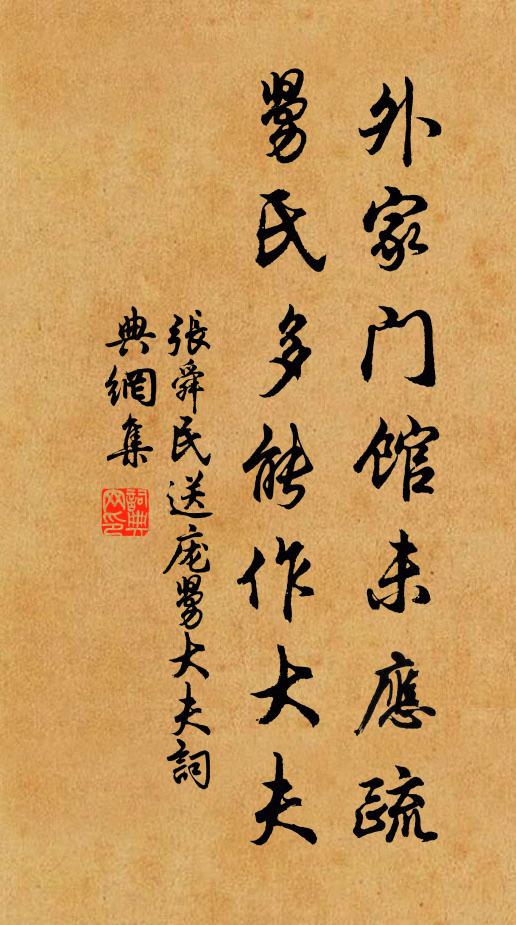 外家门馆未應疏
舅氏多能作大夫
張舜民送庞舅大夫詞
典網集
詞典网印